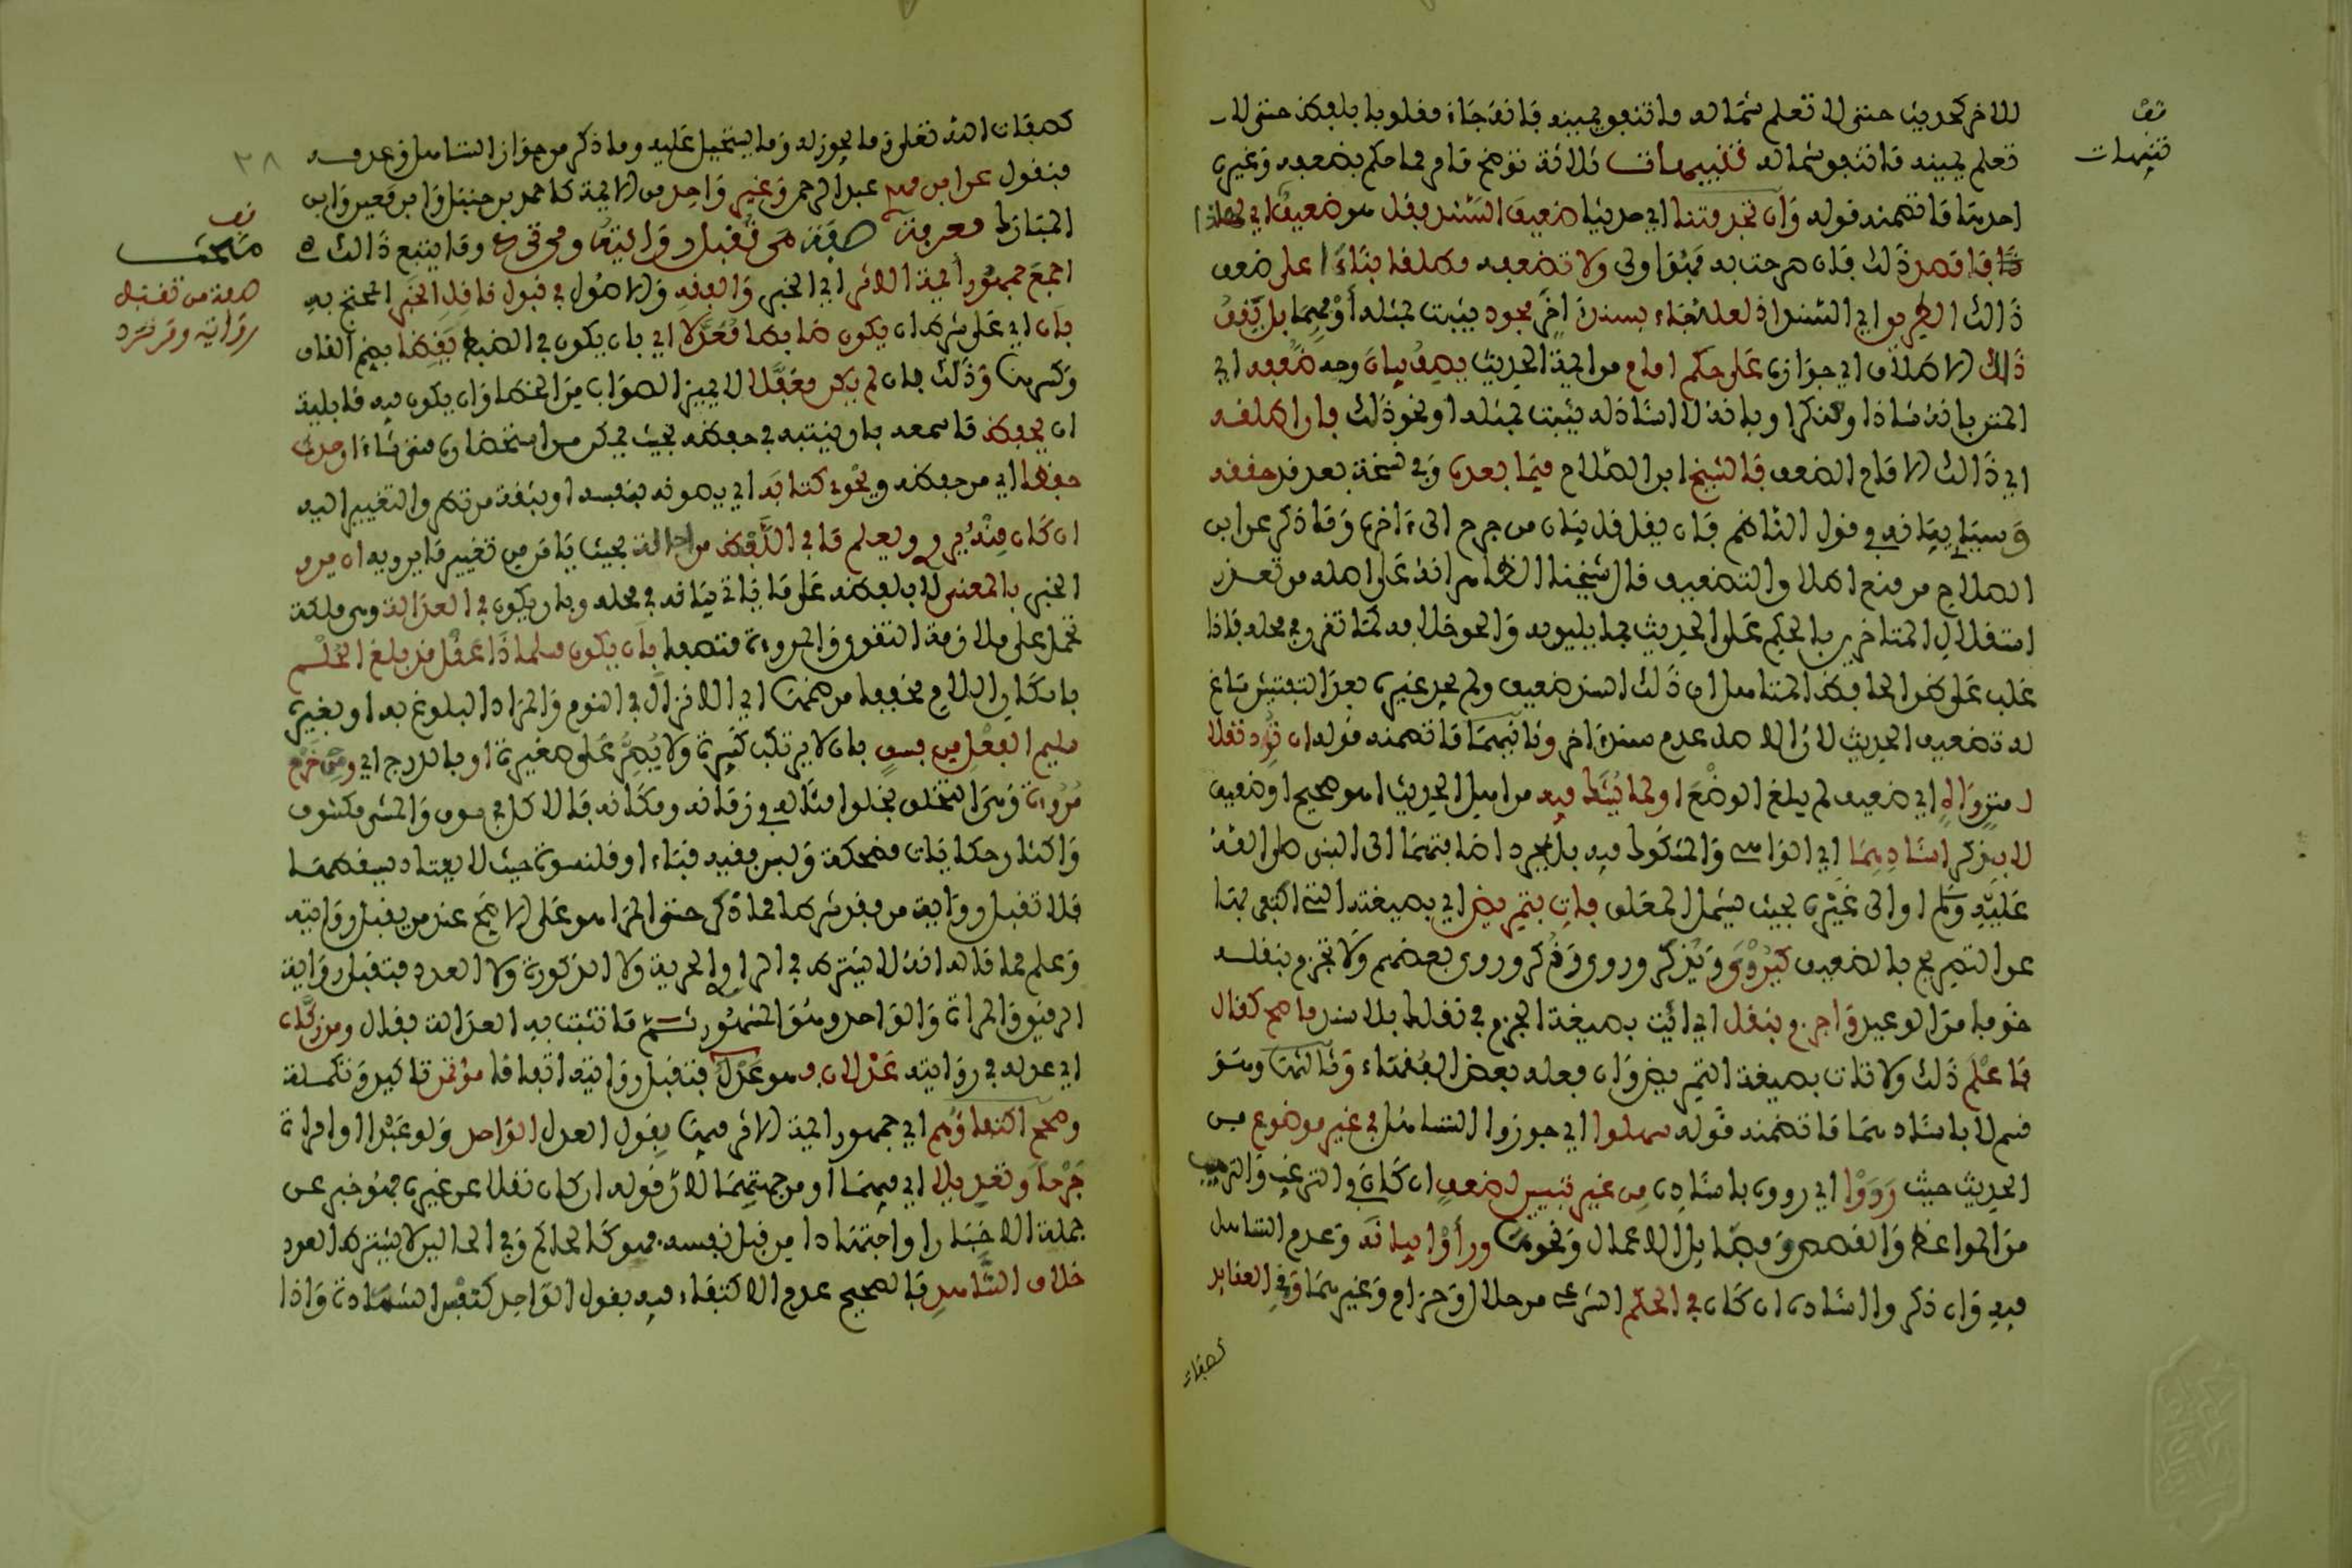 قف
تنبيهات
للاخر كحديث حتى لا تعلم شماله ما تنفق يمينه فانه جاء مقلوبا بلفظ حتى لا
تعلم يمينه ما تنفق شماله تنبيهات ثلاثة توضح ما مر مما حكم بضعفه وغيره
احدها ما تضمنه قوله وان تجد متنا اي حديثا ضعيف السند فقل هو ضعيف اي بهذا
فاقصد ذلك فان صرحت به فهو اولى ولا تضعفه مطلقا بناء على ضعف
ذالك الطريق اي السند اذ لعله جاء بسند اخر مجود يثبت بمثله او بهما بل يقف
ذاك الاطلاق اي جوازه على حكم امام من ايمة الحديث يصف بيان وجه ضعفه اي
المتن بانه شاذا او منكرا وبانه لا اسناد له يثبت بمثله او نحو ذلك فان اطلقه
اي ذالك الامام الضعف فالشيخ ابن الصلاح فيما بعده وفي نسخة بعد قد حققه
وسياتي بيانه في قول الناظم فان يقل قل بيان من جرح الى ءاخره وما ذكر عن ابن
الصلاح من منع اطلاق التضعيف قال شيخنا الظاهر انه على اصله من تعذر
استقلال المتاخرين بالحكم على الحديث بما يليق به والحق خلافه كما تقرر في محله فاذا
غلب على ظن الحافظ المتاهل ان ذلك السند ضعيف ولم يجد غيره بعد التفتيش ساغ
له تضعيف الحديث لان الاصل عدم سند ءاخر وثانيهما ما تضمنه قوله ان ترد نقلا
لمتن واه اي ضعيف لم يبلغ الوضع او لما يشك فيه من اهل الحديث اهو صحيح او ضعيف
لا بذكر اسنادهما اي الواهي والمشكوك فيه بل بمجرد اضافتهما الى النبي صلى الله
عليه وسلم او الى غيره بحيث يشمل المعلق فات بتمريض اي بصيغته التي اكتفي بها
عن التصريح بالضعيف كيروى ويذكر وروي وذكر وروى بعضهم ولا تجزم بنقله
خوفا من الوعيد واجزم بنقل اي ائت بصيغة الجزم في نقلك بلا سند ما صح كقال
فاعلم ذلك ولا تات بصيغة التمريض وان فعله بعض الفقهاء وثالثها وهو
قسم لا باسنادهما ما تضمنه قوله سهلوا اي جوزوا التساهل في غير موضوع من
الحديث حيث رووا اي رووه باسناده من غير تبيين لضعف ان كان في الترغيب والترهيب
من المواعظ والقصص وفضايل الاعمال ونحوها وراوا بيانه وعدم التساهل
فيه وان ذكروا اسناده ان كان في الحكم الشرعي من حلال وحرام وغيرهما وفي العقايد
كصفات
٢٨
كصفات الله تعلى وما يجوز له وما يستحيل عليه وما ذكر من جواز التساهل وعدمه
منقول عن ابن مهدي عبد الرحمن وغير واحد من الايمة كاحمد بن حنبل وابن معين وابن
المبارك معرفة صفة من تقبل روايته ومن ترد وما يتبع ذالك
قف
مبحث
صفة من تقبل
روايته ومن ترد
اجمع جمهور ايمة الاثر اي الخبر والفقه والاصول في قبول ناقل الخبر المحتج به
بان اي على شرط ان يكون ضابطا معدلا اي بان يكون في الضبط يقظا بضم القاف
وكسرها وذلك بان لم يكن مغفلا لا يميز الصواب من الخطا وان يكون فيه قابلية
ان يحفظ ما سمعه بان يثبته في حفظه بحيث يمكن من استحضاره متى شاء ان حدث
حفظا اي من حفظه ويحوي كتابه اي يصونه بنفسه او بثقة من تطرق التغيير اليه
ان كان منه يروي ويعلم ما في اللفظ من احالة بحيث يامن من تغيير ما يرويه ان يرو
الخبر بالمعنى لا بلفظه على ما ياتي بيانه في محله وبان يكون في العدالة وهي ملكة
تحمل على ملازمة التقوى والمروءة متصفا بان يكون مسلما ذا عقل قد بلغ الحلم
باسكان اللام مخففا من ضمها اي الانزال في النوم والمراد البلوغ به او بغيره
سليم الفعل من فسق بان لا يرتكب كبيرة ولا يصر على صغيرة او بالدرج اي ومن خرم
مروءة وهي التخلق بخلق امثاله في زمانه ومكانه فالاكل في سوق والمشي مكشوف
واكثار حكايات مضحكة ولبس فقيه قباء او قلنسوة حيث لا يعتاد يسقطها
فلا تقبل رواية من فقد شرطا مما ذكر حتى المراهق على الاصح عند من يقبل روايته
وعلم مما قاله انه لا يشترط في الراوي الحرية ولا الذكورة ولا العدد فتقبل رواية
الرقيق والمراة والواحد وهو المشهور ثم ما تثبت به العدالة فقال ومن زكاه
اي عدله في روايته عدلان فهو عدل فتقبل روايته اتفاقا مؤتمن تاكيد وتكملة
وصحح اكتفاؤهم اي جمهور ايمة الاثر فيها بقول العدل الواحد ولو عبدا او امراة
جرحا وتعديلا اي فيهما او من جهتهما لان قوله ان كان نقلا عن غيره فهو خبر عن
جملة الاخبار او اجتهادا من قبل نفسه فهو كالحاكم وفي الحالين لا يشترط العدد
خلاف الشاهد فالصحيح عدم الاكتفاء فيه بقول الواحد كنفس الشهادة واذا